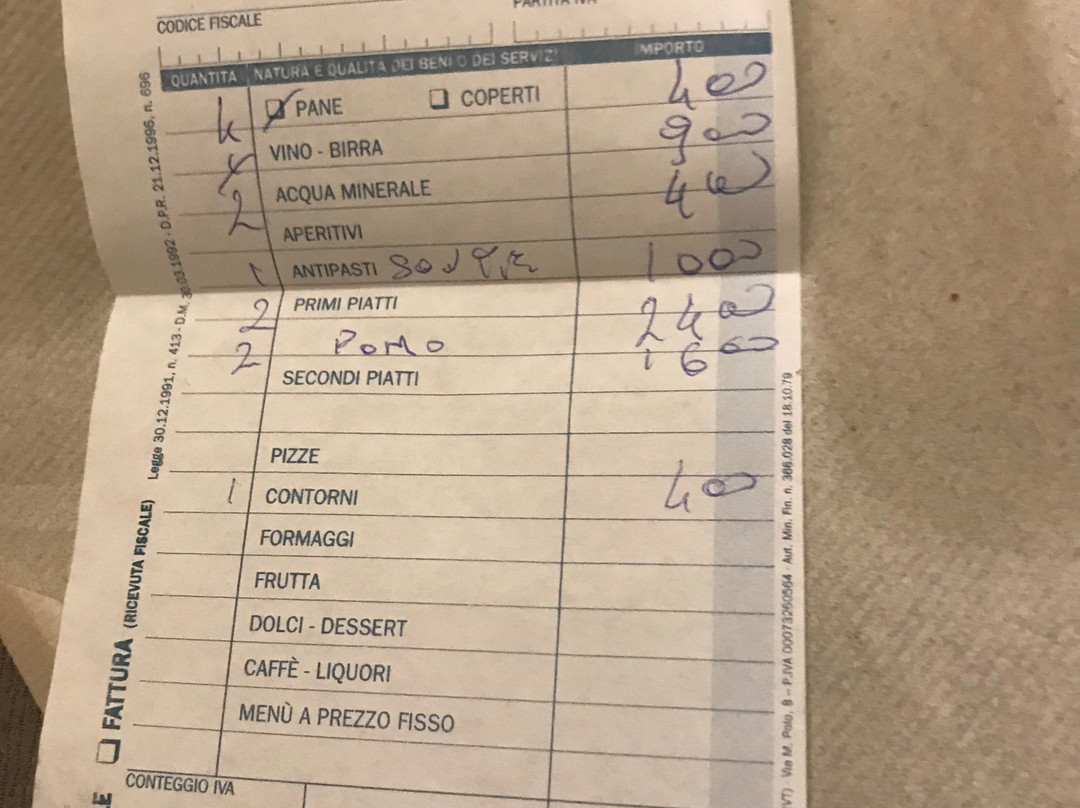 CODICE FISCALE
PARTITA IVA
QUANTITÀ NATURA E QUALITÀ DEI BENI O DEI SERVIZI IMPORTO
4 PANE COPERTI 4 00
VINO - BIRRA 9 00
2 ACQUA MINERALE 4 00
APERITIVI
1 ANTIPASTI 10 00
2 PRIMI PIATTI 24 00
2 POMO 16 00
SECONDI PIATTI
PIZZE
1 CONTORNI 4 00
FORMAGGI
FRUTTA
DOLCI - DESSERT
CAFFÈ - LIQUORI
MENÙ A PREZZO FISSO
CONTEGGIO IVA
FATTURA (RICEVUTA FISCALE)
Legge 30.12.1991, n. 413 - D.M. 30.03.1992 - D.P.R. 21.12.1996, n. 696
VT) Via M. Polo, 8 – P.IVA 00073260564 - Aut. Min. Fin. n. 366.028 del 18.10.79